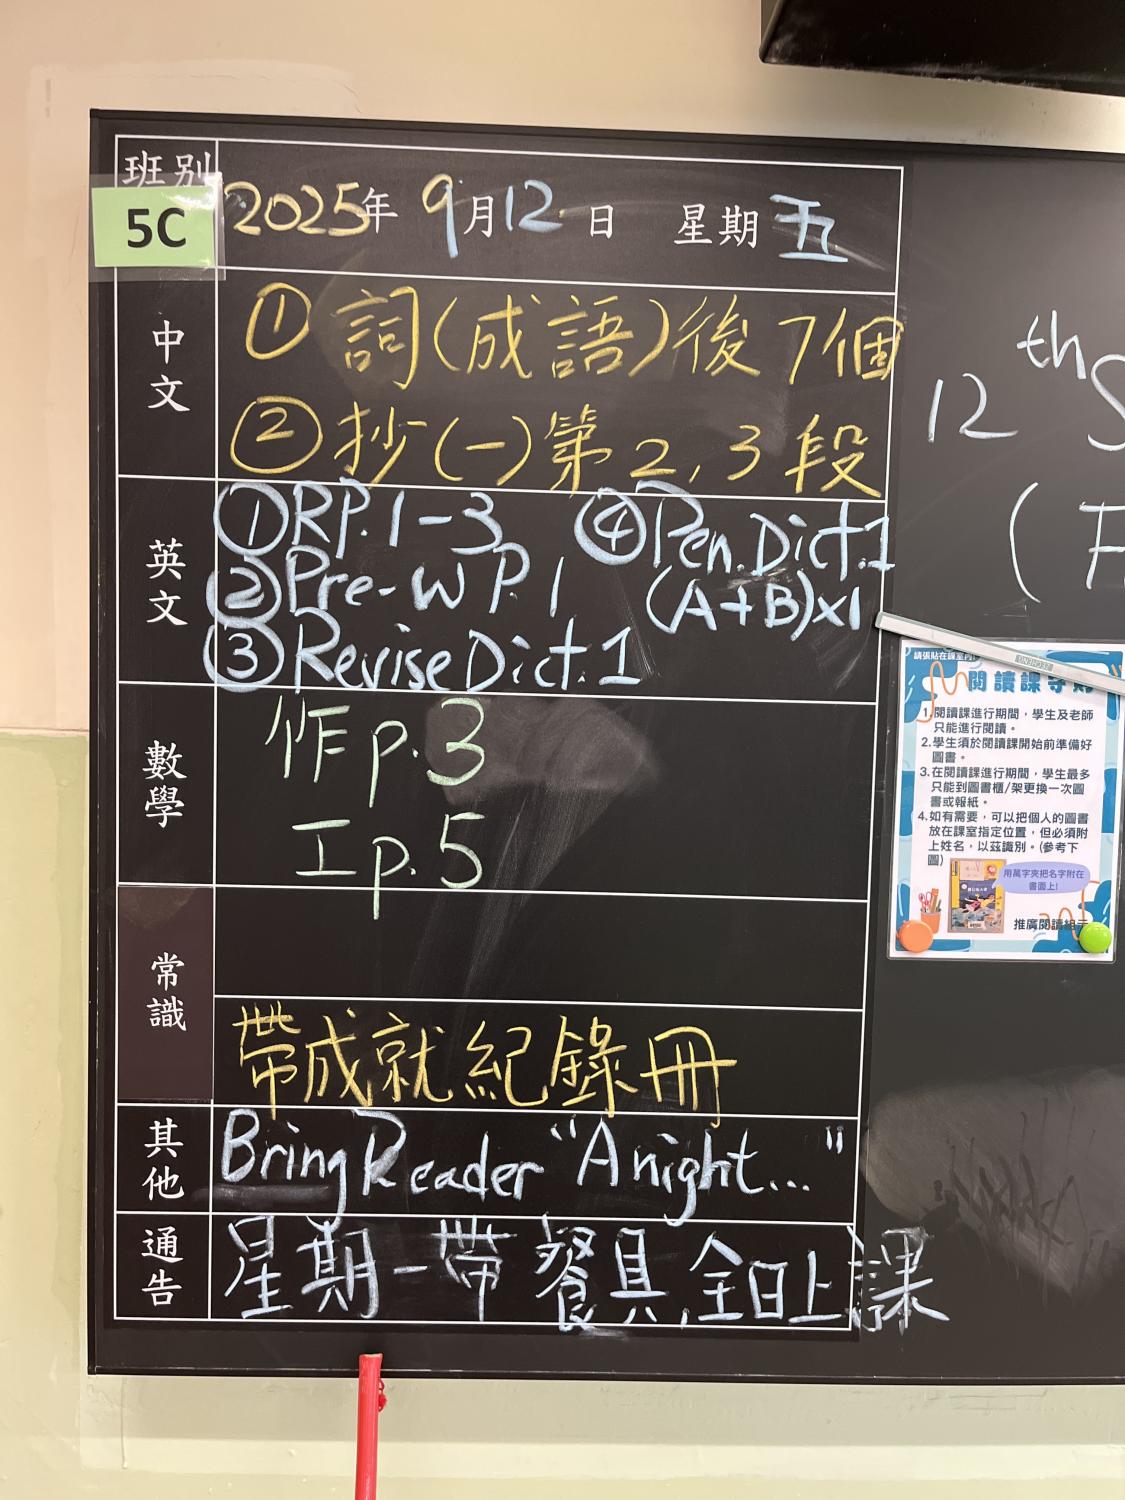 班別
5C
2025年 9月12日 星期五
中文
①詞(成語)後7個
②抄(一)第2,3段
英文
①RP.1-3 ④Pen.Dict.1
②Pre-W P.1 (A+B)x1
③Revise Dict.1
數學
作p.3
工p.5
常識
帶成就紀錄冊
其他
Bring Reader "A night..."
通告
星期一帶餐具,全日上課
12th S
(F
請張貼在課室內
閱讀課守則
1.閱讀課進行期間,學生及老師
只能進行閱讀。
2.學生須於閱讀課開始前準備好
圖書。
3.在閱讀課進行期間,學生最多
只能到圖書櫃/架更換一次圖
書或報紙。
4.如有需要,可以把個人的圖書
放在課室指定位置,但必須附
上姓名,以茲識別。(參考下
圖)
用萬字夾把名字附在
書面上!
推廣閱讀組示